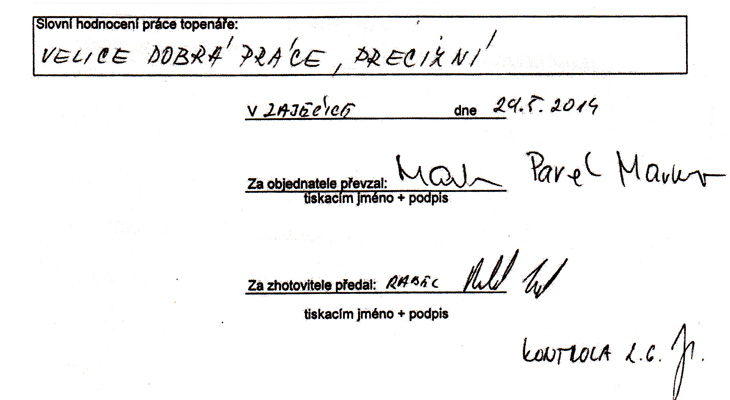 Slovní hodnocení práce topenáře:
VELICE DOBRÁ PRÁCE, PRECIZNÍ
V ZAJEČÍCÍCH dne 29.5.2014
Za objednatele převzal: Pavel
tiskacím jméno + podpis
Za zhotovitele předal: RABEC
tiskacím jméno + podpis
KONTROLA 2.6.